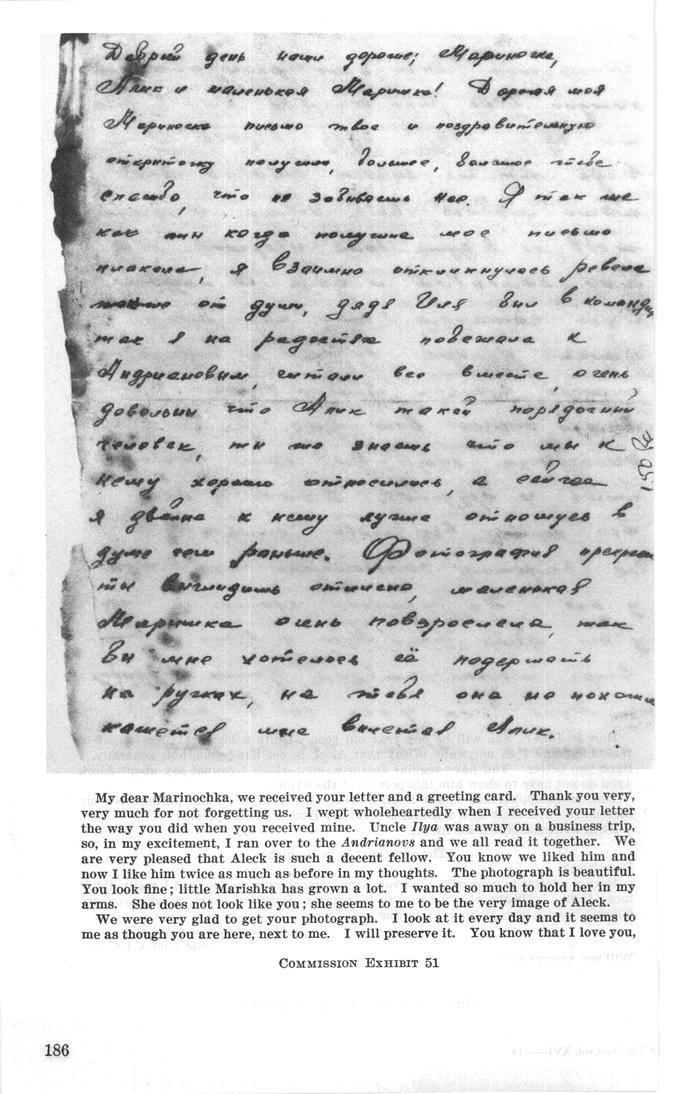 Добрый день наши дорогие; Мариночка,
Алик и маленькая Маришка! Дорогая моя
Мариночка письмо твое и поздравительную
открыточку получили, большое, большое тебе
спасибо, что не забываешь нас. Я так же
как ты когда получила мое письмо
плакала, я взаимно откликнулась ревела
от души, дядя Илья был в команди
так я на радостях побежала к
Андриановым, читали все вместе, очень
довольны что Алик такой порядочный
человек, ты же знаешь что мы к
нему хорошо относились, а сейчас
я двойне к нему лучше отношусь в
душе чем раньше. Фотография прекрасн
ты выглядишь отлично, маленькая
Маришка очень повзрослела, так
бы мне хотелось её подержать
на ручках, на тебя она не похожа
кажется мне вылетая Алик.
My dear Marinochka, we received your letter and a greeting card. Thank you very,
very much for not forgetting us. I wept wholeheartedly when I received your letter
the way you did when you received mine. Uncle Ilya was away on a business trip,
so, in my excitement, I ran over to the Andrianovs and we all read it together. We
are very pleased that Aleck is such a decent fellow. You know we liked him and
now I like him twice as much as before in my thoughts. The photograph is beautiful.
You look fine; little Marishka has grown a lot. I wanted so much to hold her in my
arms. She does not look like you; she seems to me to be the very image of Aleck.
We were very glad to get your photograph. I look at it every day and it seems to
me as though you are here, next to me. I will preserve it. You know that I love you,
COMMISSION EXHIBIT 51
186